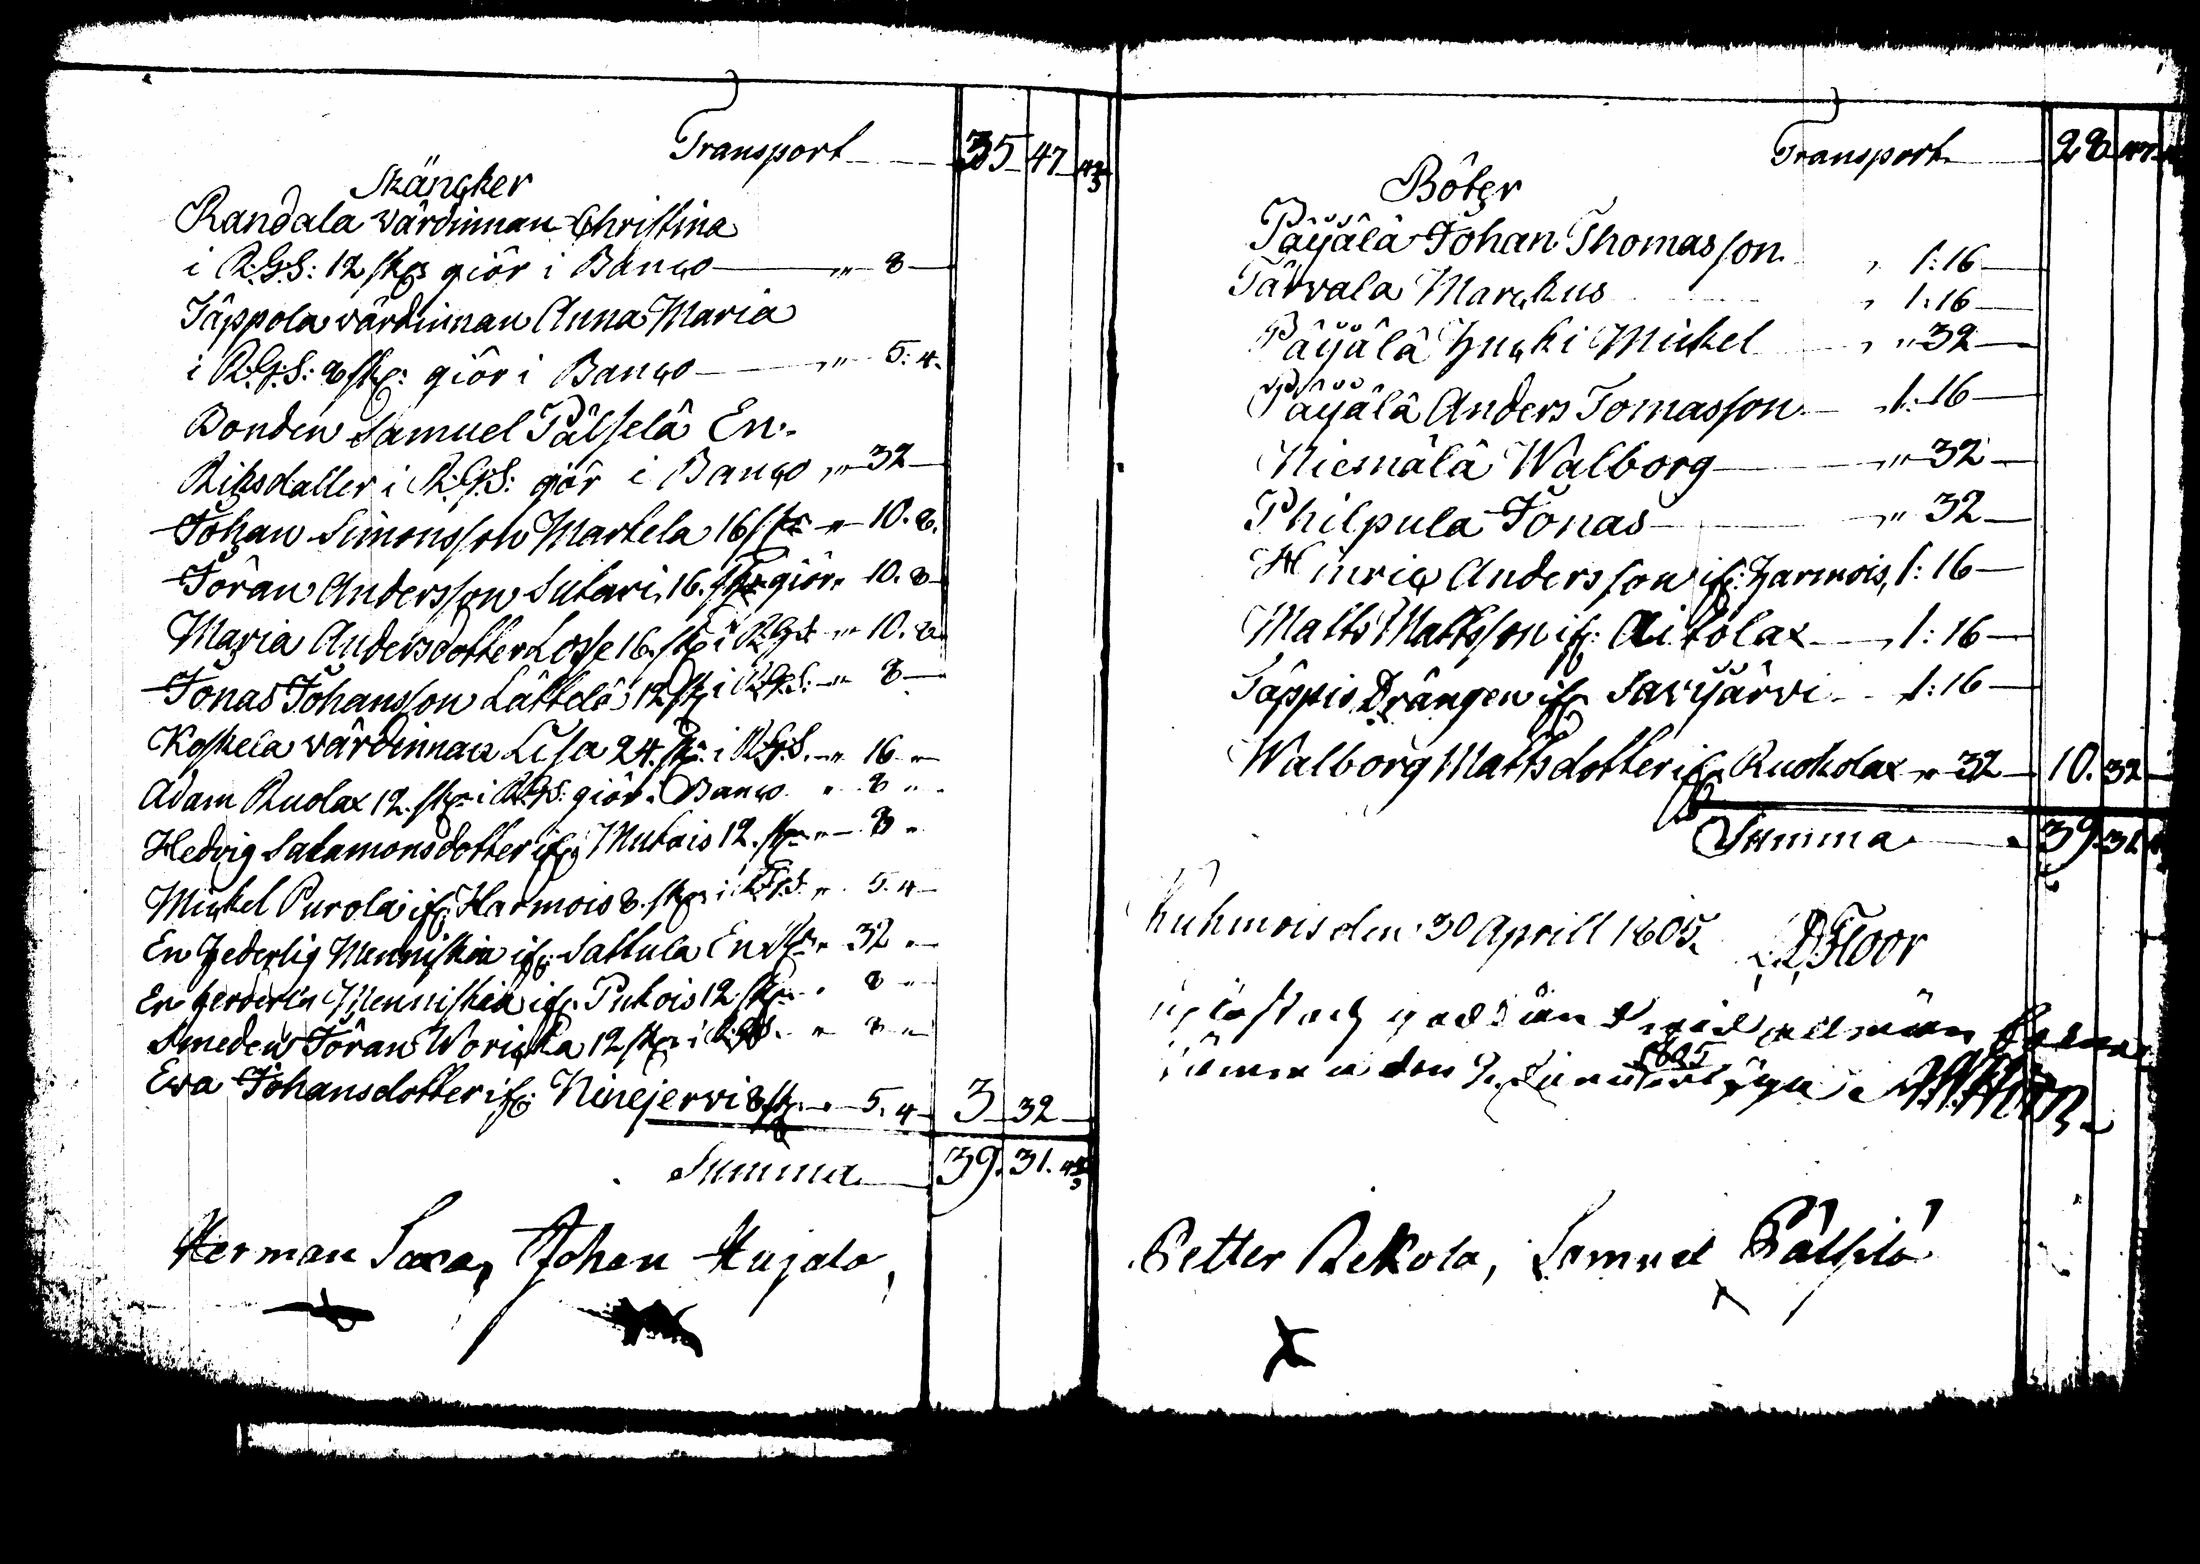 Transport 35 47
Skäncker
Randala värdinnan Christina
i R:G:S: 12 sk: giör i Banco 8
Jäppola värdinnan Anna Maria
i R:G:S: 8 sk: giör i Banco 5: 4.
Bonden Samuel Pälselä En
Riksdaller i R:G:S: giör i Banco 32
Johan Simonsson Martela 16 sk 10. 8.
Jöran Andersson Sutari 16. sk giör 10. 8
Maria Andersdotter Losse 16. sk i R:G:S 10. 8
Jonas Johansson Lättelä 12 sk i R:G:S: 8
Koskela värdinnan Lisa 24. sk: i R:G:S. 16
Adam Ruolax 12. sk: i R:G:S: giör. Banco 8
Hedvig Salamonsdotter if: Mutais 12. sk 8
Mickel Purola if: Harmois 8. sk i R:G:S. 5. 4
En Hederlig Menniskia if: Sattula En 32
En Menniskia if: Putois 12 sk 8
Smeden Jöran Woricka 12 sk i R:G:S. 8
Ewa Johansdotter if: Ninejerwi 8 sk 5. 4 3 32
Summa 39. 31.
Herman Saxa, Johan Kujala,
Transport 28
Böter
Päÿälä Johan Thomasson 1: 16
Tarvala Marckus 1: 16
Päÿälä Mickel 32
Päÿälä Anders Tomasson 1: 16
Niemälä Walborg 32
Philpula Jonas 32
Hinric Andersson if: Harmois, 1: 16
Matts Mattsson if: Aitolax 1: 16
Jäppis Drängen if: Savÿärvi 1: 16
Walborg Mattsdotter if: Ruokolax 32 10. 32
Summa 39. 31
Kuhmois den 30 Aprill 1805. Floor
den 1805
Petter Rekola, Samuel Pälsilä